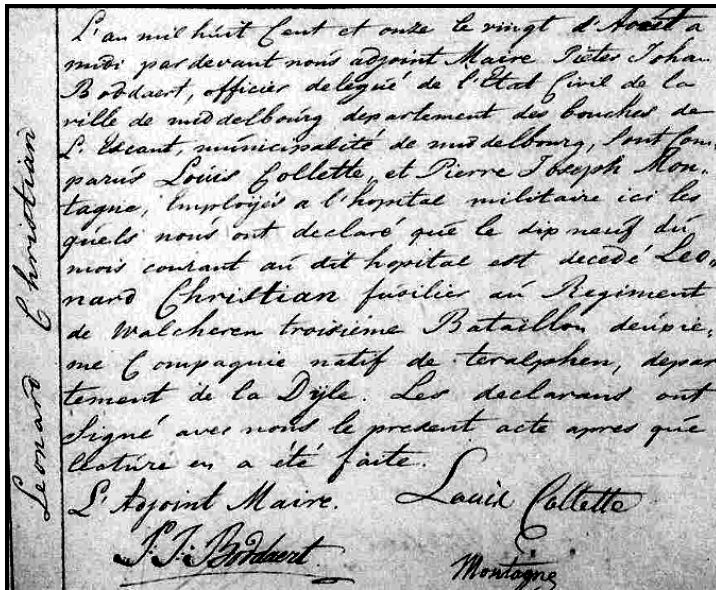 Leonard Christian
L'an mil huit Cent et onze le vingt d'Août a
midi par devant nous adjoint Maire Pieter Joha„
Boddaert, officier delegué de l'Etat Civil de la
ville de middelbourg departement des bouches de
L'Escaut, municipalité de middelbourg, Sont Com„
parus Louis Collette, et Pierre Joseph Mon„
tagne, Employés a l'hopital militaire ici les
quels nous ont declaré que le dix neuf du
mois courant au dit hopital est decedé Leo„
nard Christian fusilier au Regiment
de Walcheren troisiéme Bataillon deuxie„
me Compagnie natif de teralphen, depar
tement de la Dijle. Les declarans ont
Signé avec nous le present acte apres que
lecture en a été faite.
L'Adjoint Maire. Louis Collette
P: J: Boddaert. Montagne